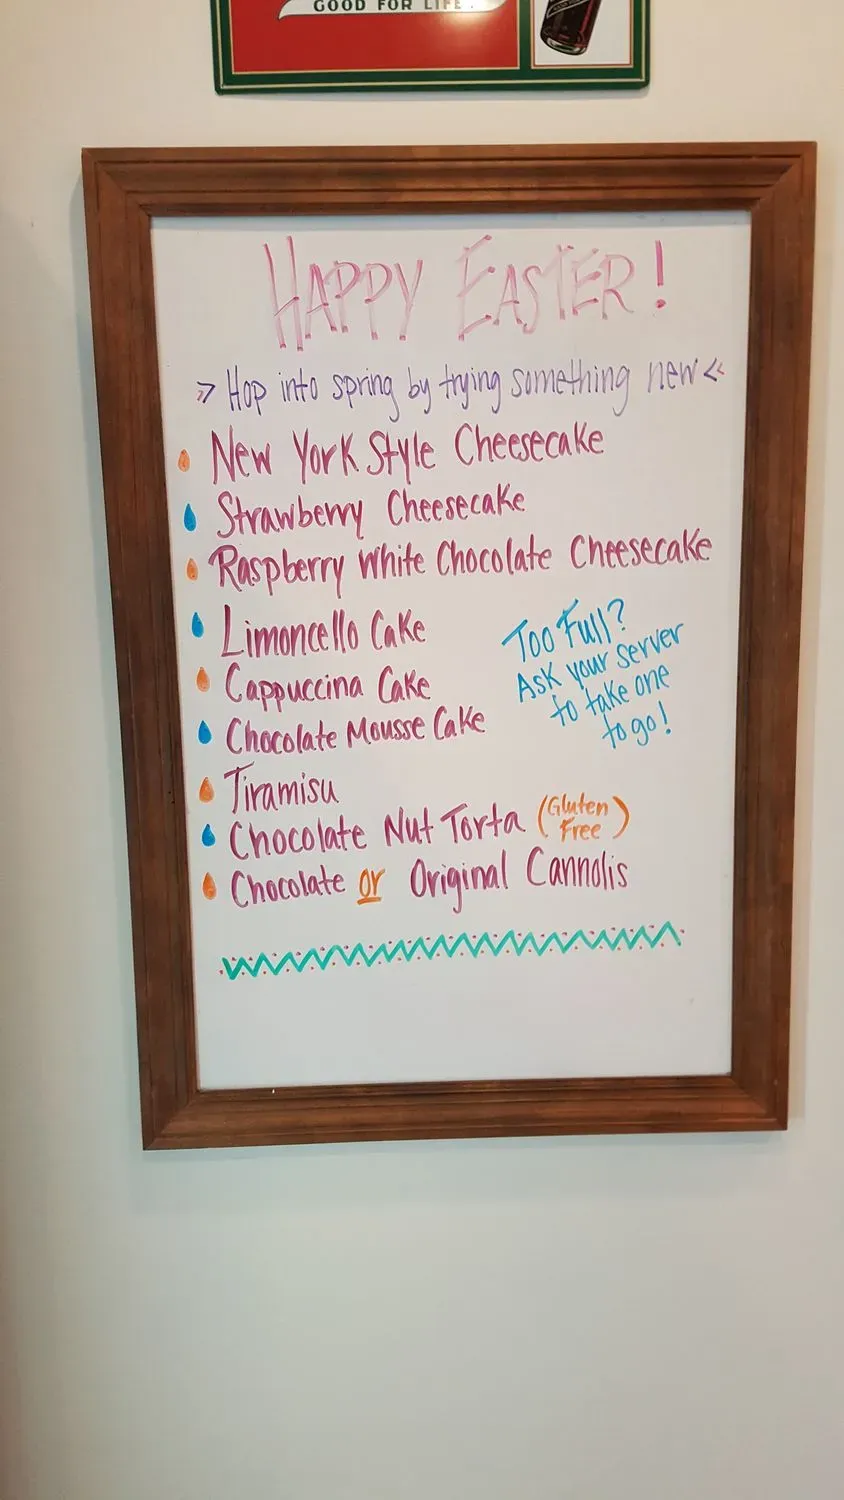 GOOD FOR LIFE
HAPPY EASTER!
>> Hop into spring by trying something new <<
New York Style Cheesecake
Strawberry Cheesecake
Raspberry White Chocolate Cheesecake
Limoncello Cake
Cappuccina Cake
Chocolate Mousse Cake
Too Full?
Ask your server
to take one
to go!
Tiramisu
Chocolate Nut Torta (Gluten
Free)
Chocolate or Original Cannolis